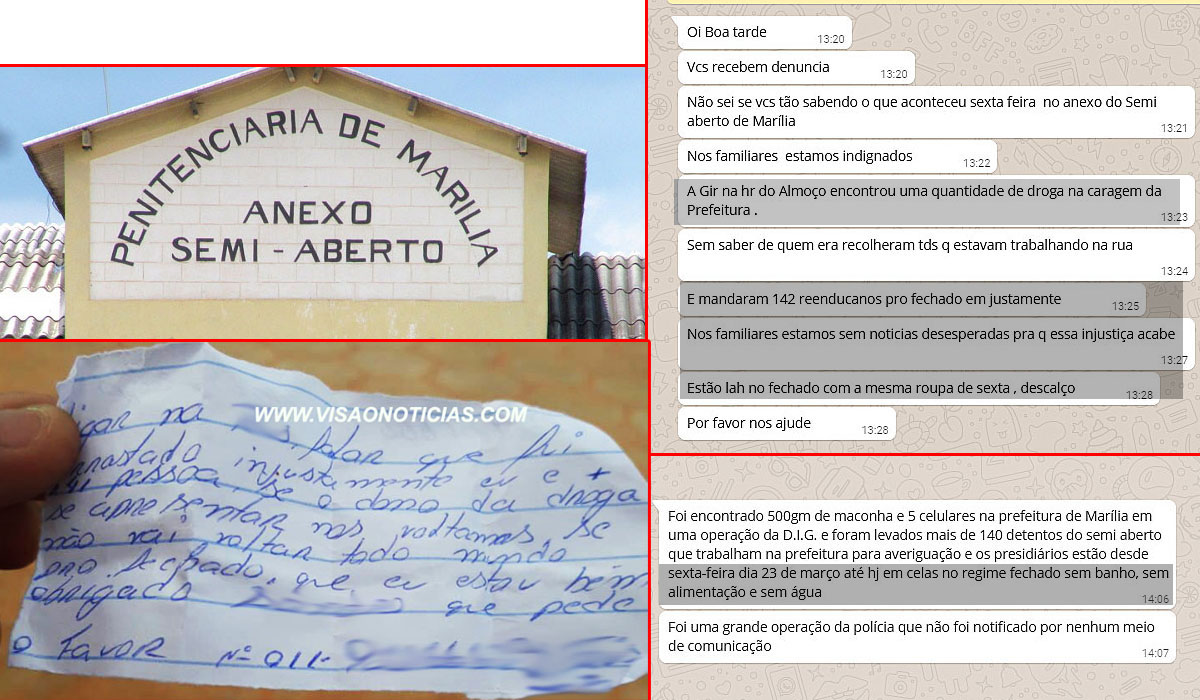 PENITENCIARIA DE MARILIA
ANEXO
SEMI - ABERTO
WWW.VISAONOTICIAS.COM
na
falar que fui
injustamente eu e +
pessoa, se o dono da droga
se apresentar nos voltamos, se
não vai voltar todo mundo
pro fechado, que eu estou bem
obrigado que pede
o Favor Nº 011-
Oi Boa tarde
13:20
Vcs recebem denuncia
13:20
Não sei se vcs tão sabendo o que aconteceu sexta feira no anexo do Semi
aberto de Marília
13:21
Nos familiares estamos indignados
13:22
A Gir na hr do Almoço encontrou uma quantidade de droga na caragem da
Prefeitura .
13:23
Sem saber de quem era recolheram tds q estavam trabalhando na rua
13:24
E mandaram 142 reenducanos pro fechado em justamente
13:25
Nos familiares estamos sem noticias desesperadas pra q essa injustiça acabe
13:27
Estão lah no fechado com a mesma roupa de sexta , descalço
13:28
Por favor nos ajude
13:28
Foi encontrado 500gm de maconha e 5 celulares na prefeitura de Marília em
uma operação da D.I.G. e foram levados mais de 140 detentos do semi aberto
que trabalham na prefeitura para averiguação e os presidiários estão desde
sexta-feira dia 23 de março até hj em celas no regime fechado sem banho, sem
alimentação e sem água
14:06
Foi uma grande operação da polícia que não foi notificado por nenhum meio
de comunicação
14:07